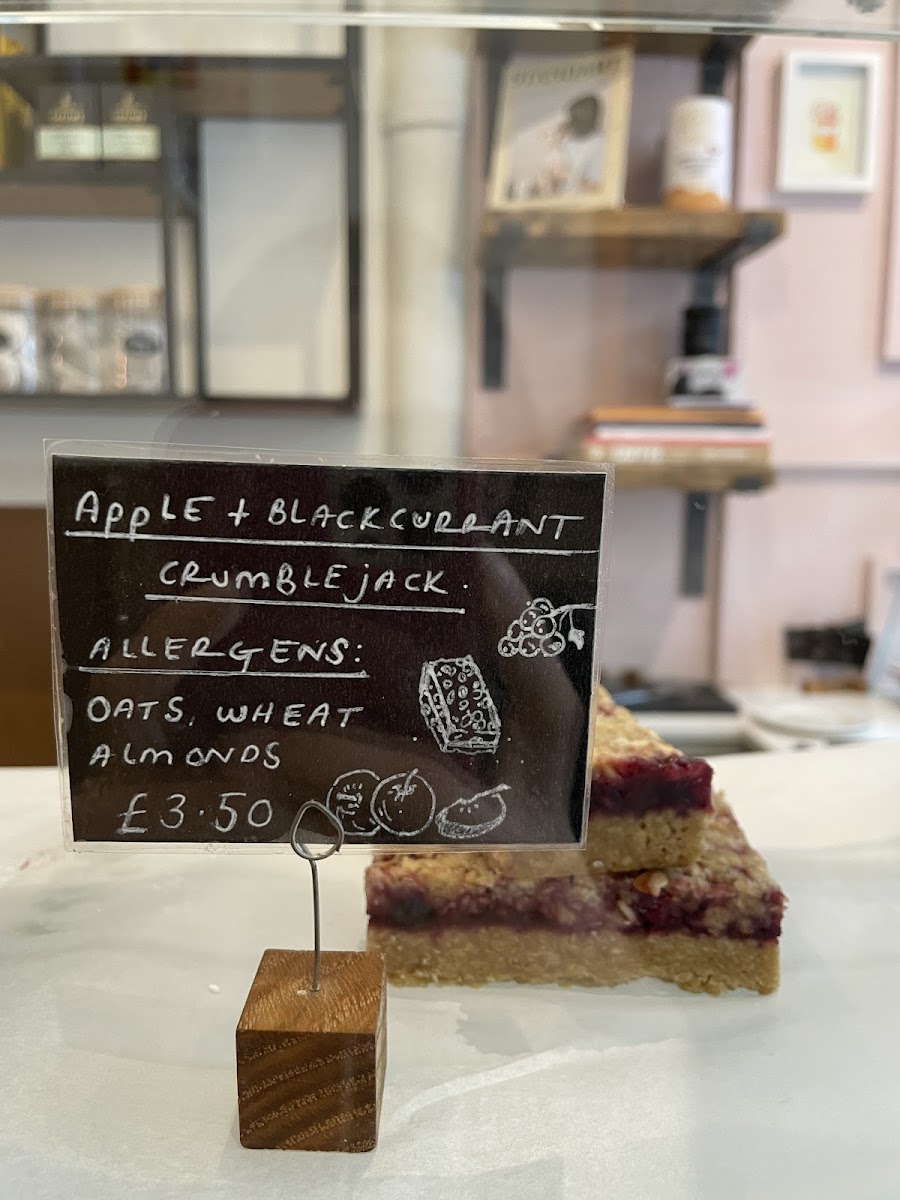 APPLE + BLACKCURRANT
CRUMBLEJACK.
ALLERGENS:
OATS, WHEAT
ALMONDS
£3.50